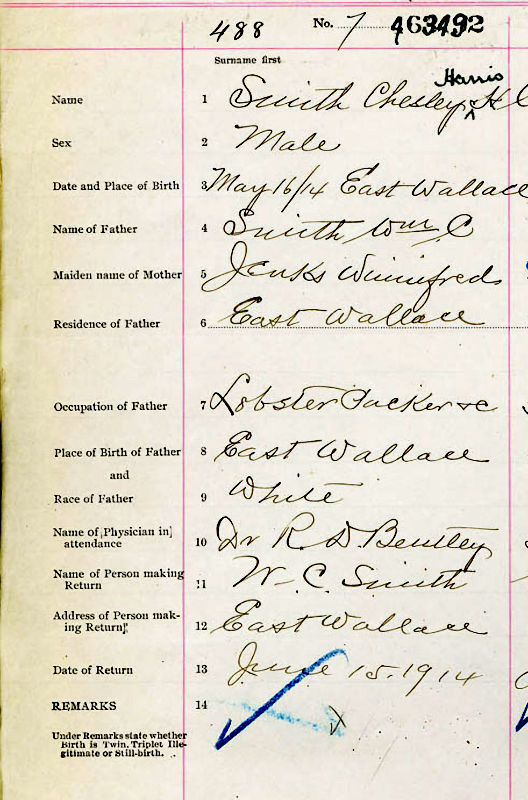 488 No. 7 463492
Surname first
Harris
Name 1 Smith Chesley ^ H
Sex 2 Male
Date and Place of Birth 3 May 16/14 East Wallace
Name of Father 4 Smith, Wm C
Maiden name of Mother 5 Jenks Winnifred
Residence of Father 6 East Wallace
Occupation of Father 7 Lobster Packer &c
Place of Birth of Father 8 East Wallace
and
Race of Father 9 White
Name of Physician in
attendance 10 Dr R. D. Bentley
Name of Person making
Return 11 W. C. Smith
Address of Person mak-
ing Return 12 East Wallace
Date of Return 13 June 15. 1914
REMARKS 14
Under Remarks state whether
Birth is Twin, Triplet Ille-
gitimate or Still-birth.